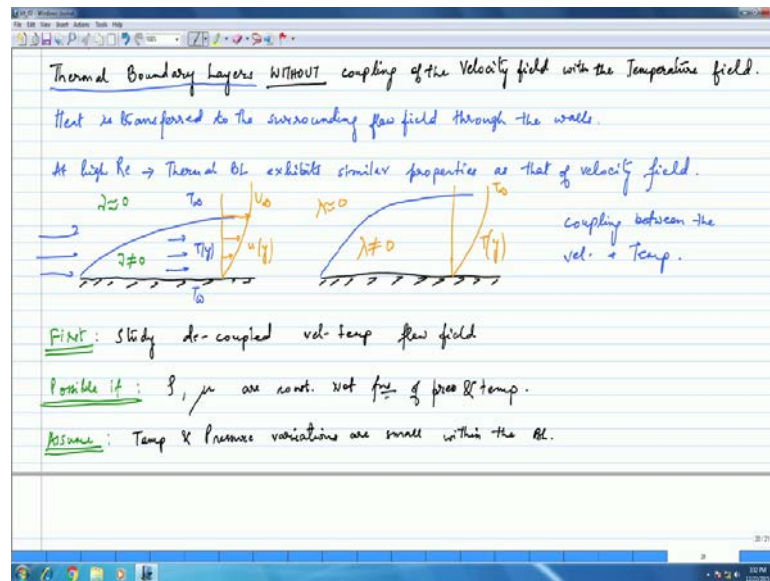 File Edit View Insert Actions Tools Help
Thermal Boundary Layers WITHOUT coupling of the Velocity field with the Temperature field.
Heat is transferred to the surrounding flow field through the walls.
At high Re → Thermal BL exhibits similar properties as that of velocity field.
λ≈0 T∞ U∞ λ≈0 T∞
coupling between the
vel. & Temp.
λ≠0 T(y) u(y) λ≠0 T(y)
First: Study de-coupled vel-temp flow field
Possible if: ρ, μ are const. Not fns of pres & temp.
Assume: Temp & Pressure variations are small within the BL.
3:02 PM